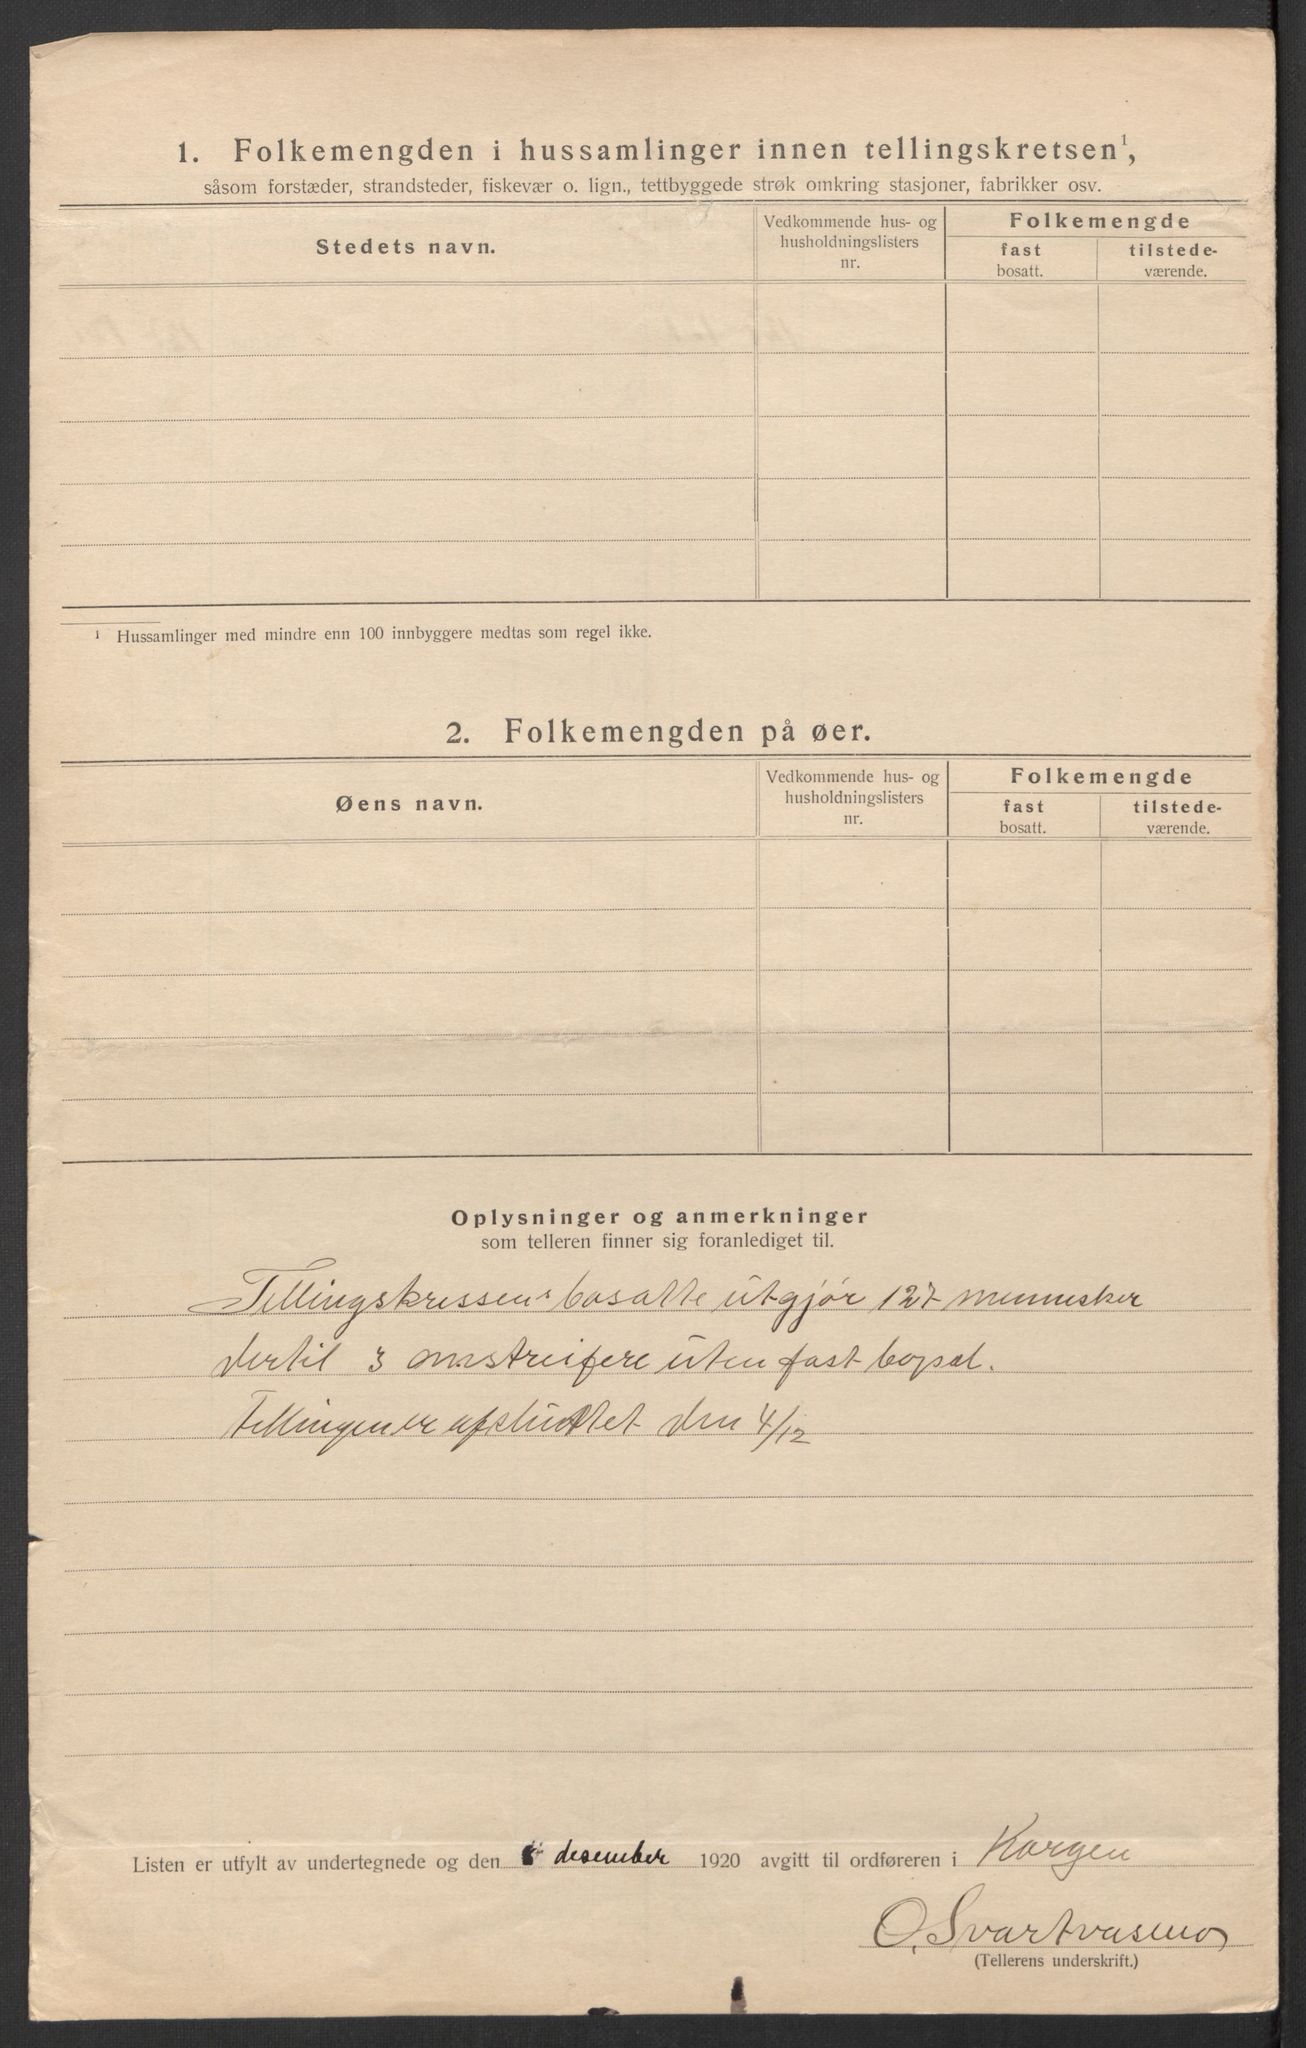 1. Folkemengden i hussamlinger innen tellingskretsen¹,
såsom forstæder, strandsteder, fiskevær o. lign., tettbyggede strøk omkring stasjoner, fabrikker osv.
Stedets navn.
Vedkommende hus- og
husholdningslisters
nr.
Folkemengde
fast
bosatt.
tilstede-
værende.
¹ Hussamlinger med mindre enn 100 innbyggere medtas som regel ikke.
2. Folkemengden på øer.
Øens navn.
Vedkommende hus- og
husholdningslisters
nr.
Folkemengde
fast
bosatt.
tilstede-
værende.
Oplysninger og anmerkninger
som telleren finner sig foranlediget til.
Tellingskressens bosatte utgjør 127 mennesker
dertil 3 omstreifere uten fast bopæl.
Tellingen er afsluttet den 4/12
Listen er utfylt av undertegnede og den desember 1920 avgitt til ordføreren i Korgen
O. Svartvasmo
(Tellerens underskrift.)